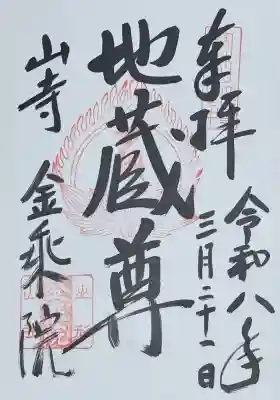 奉拝
令和八年
三月二十一日
地蔵尊
山寺 金乗院